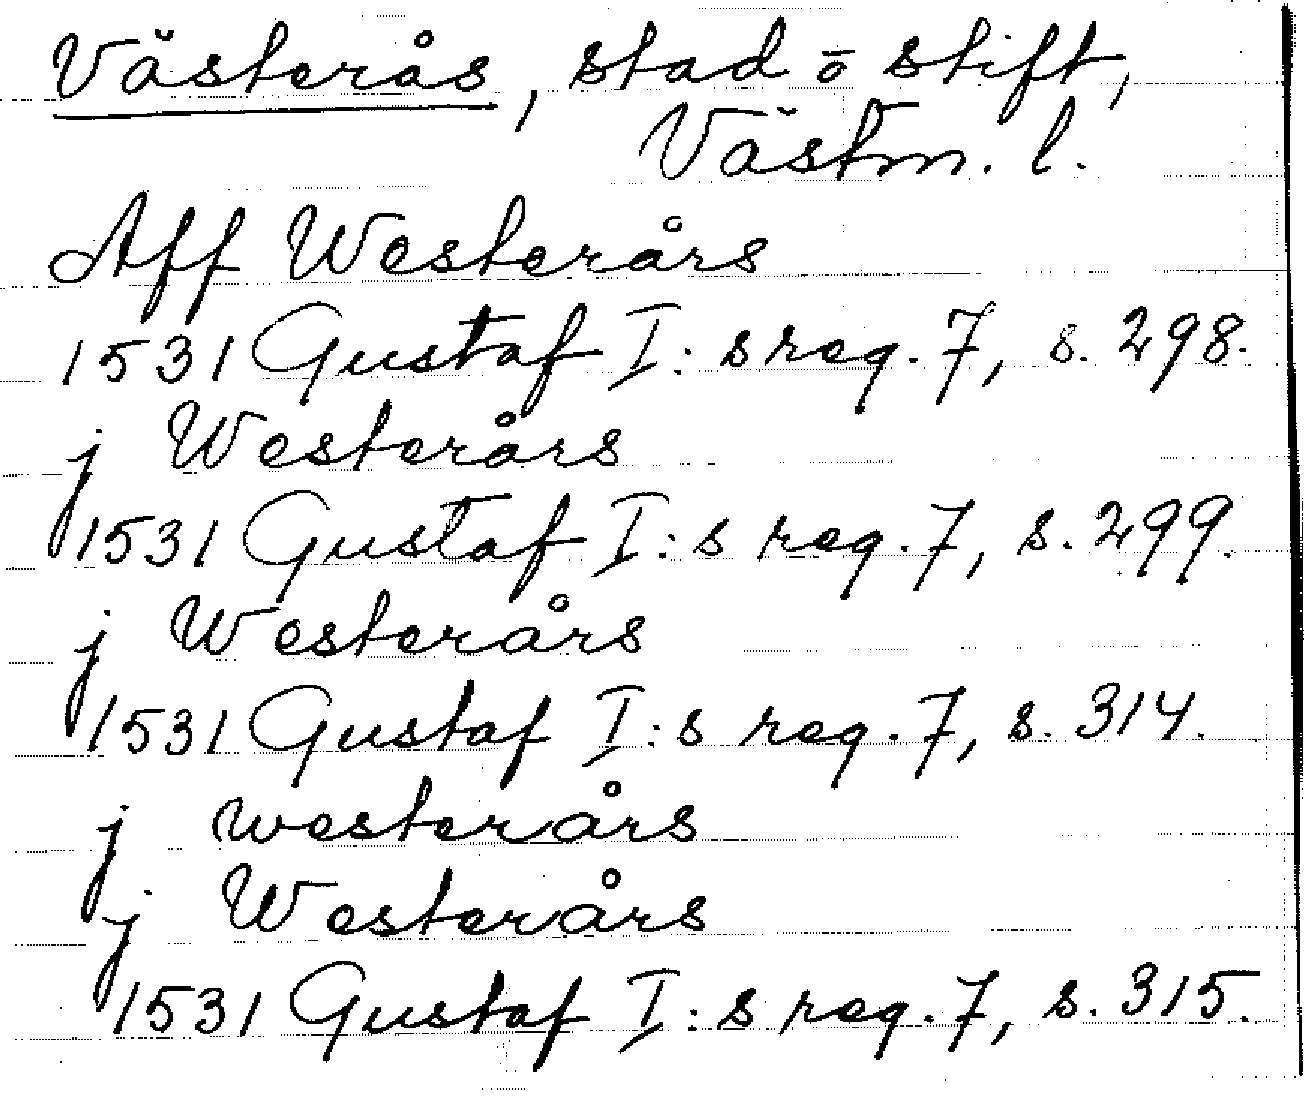 Västerås, stad ō stift,
Västm. l.
Aff Westerårs
1531 Gustaf I:s reg. 7, s. 298.
j Westerårs
1531 Gustaf I:s reg. 7, s. 299.
j Westerårs
1531 Gustaf I:s reg. 7, s. 314.
j westerårs
j Westerårs
1531 Gustaf I:s reg. 7, s. 315.